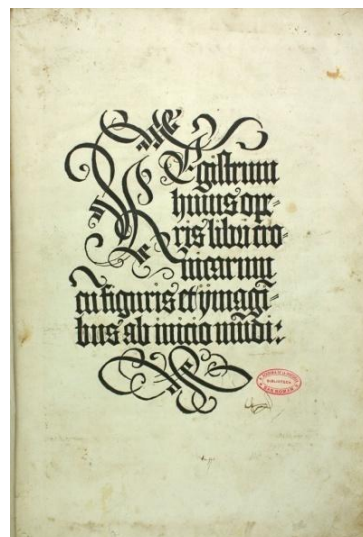 REgistrum
huius ope-
ris libri cro-
nicarum
cu figuris et ymagi-
bus ab inicio mudi:
BIBLIOTECA